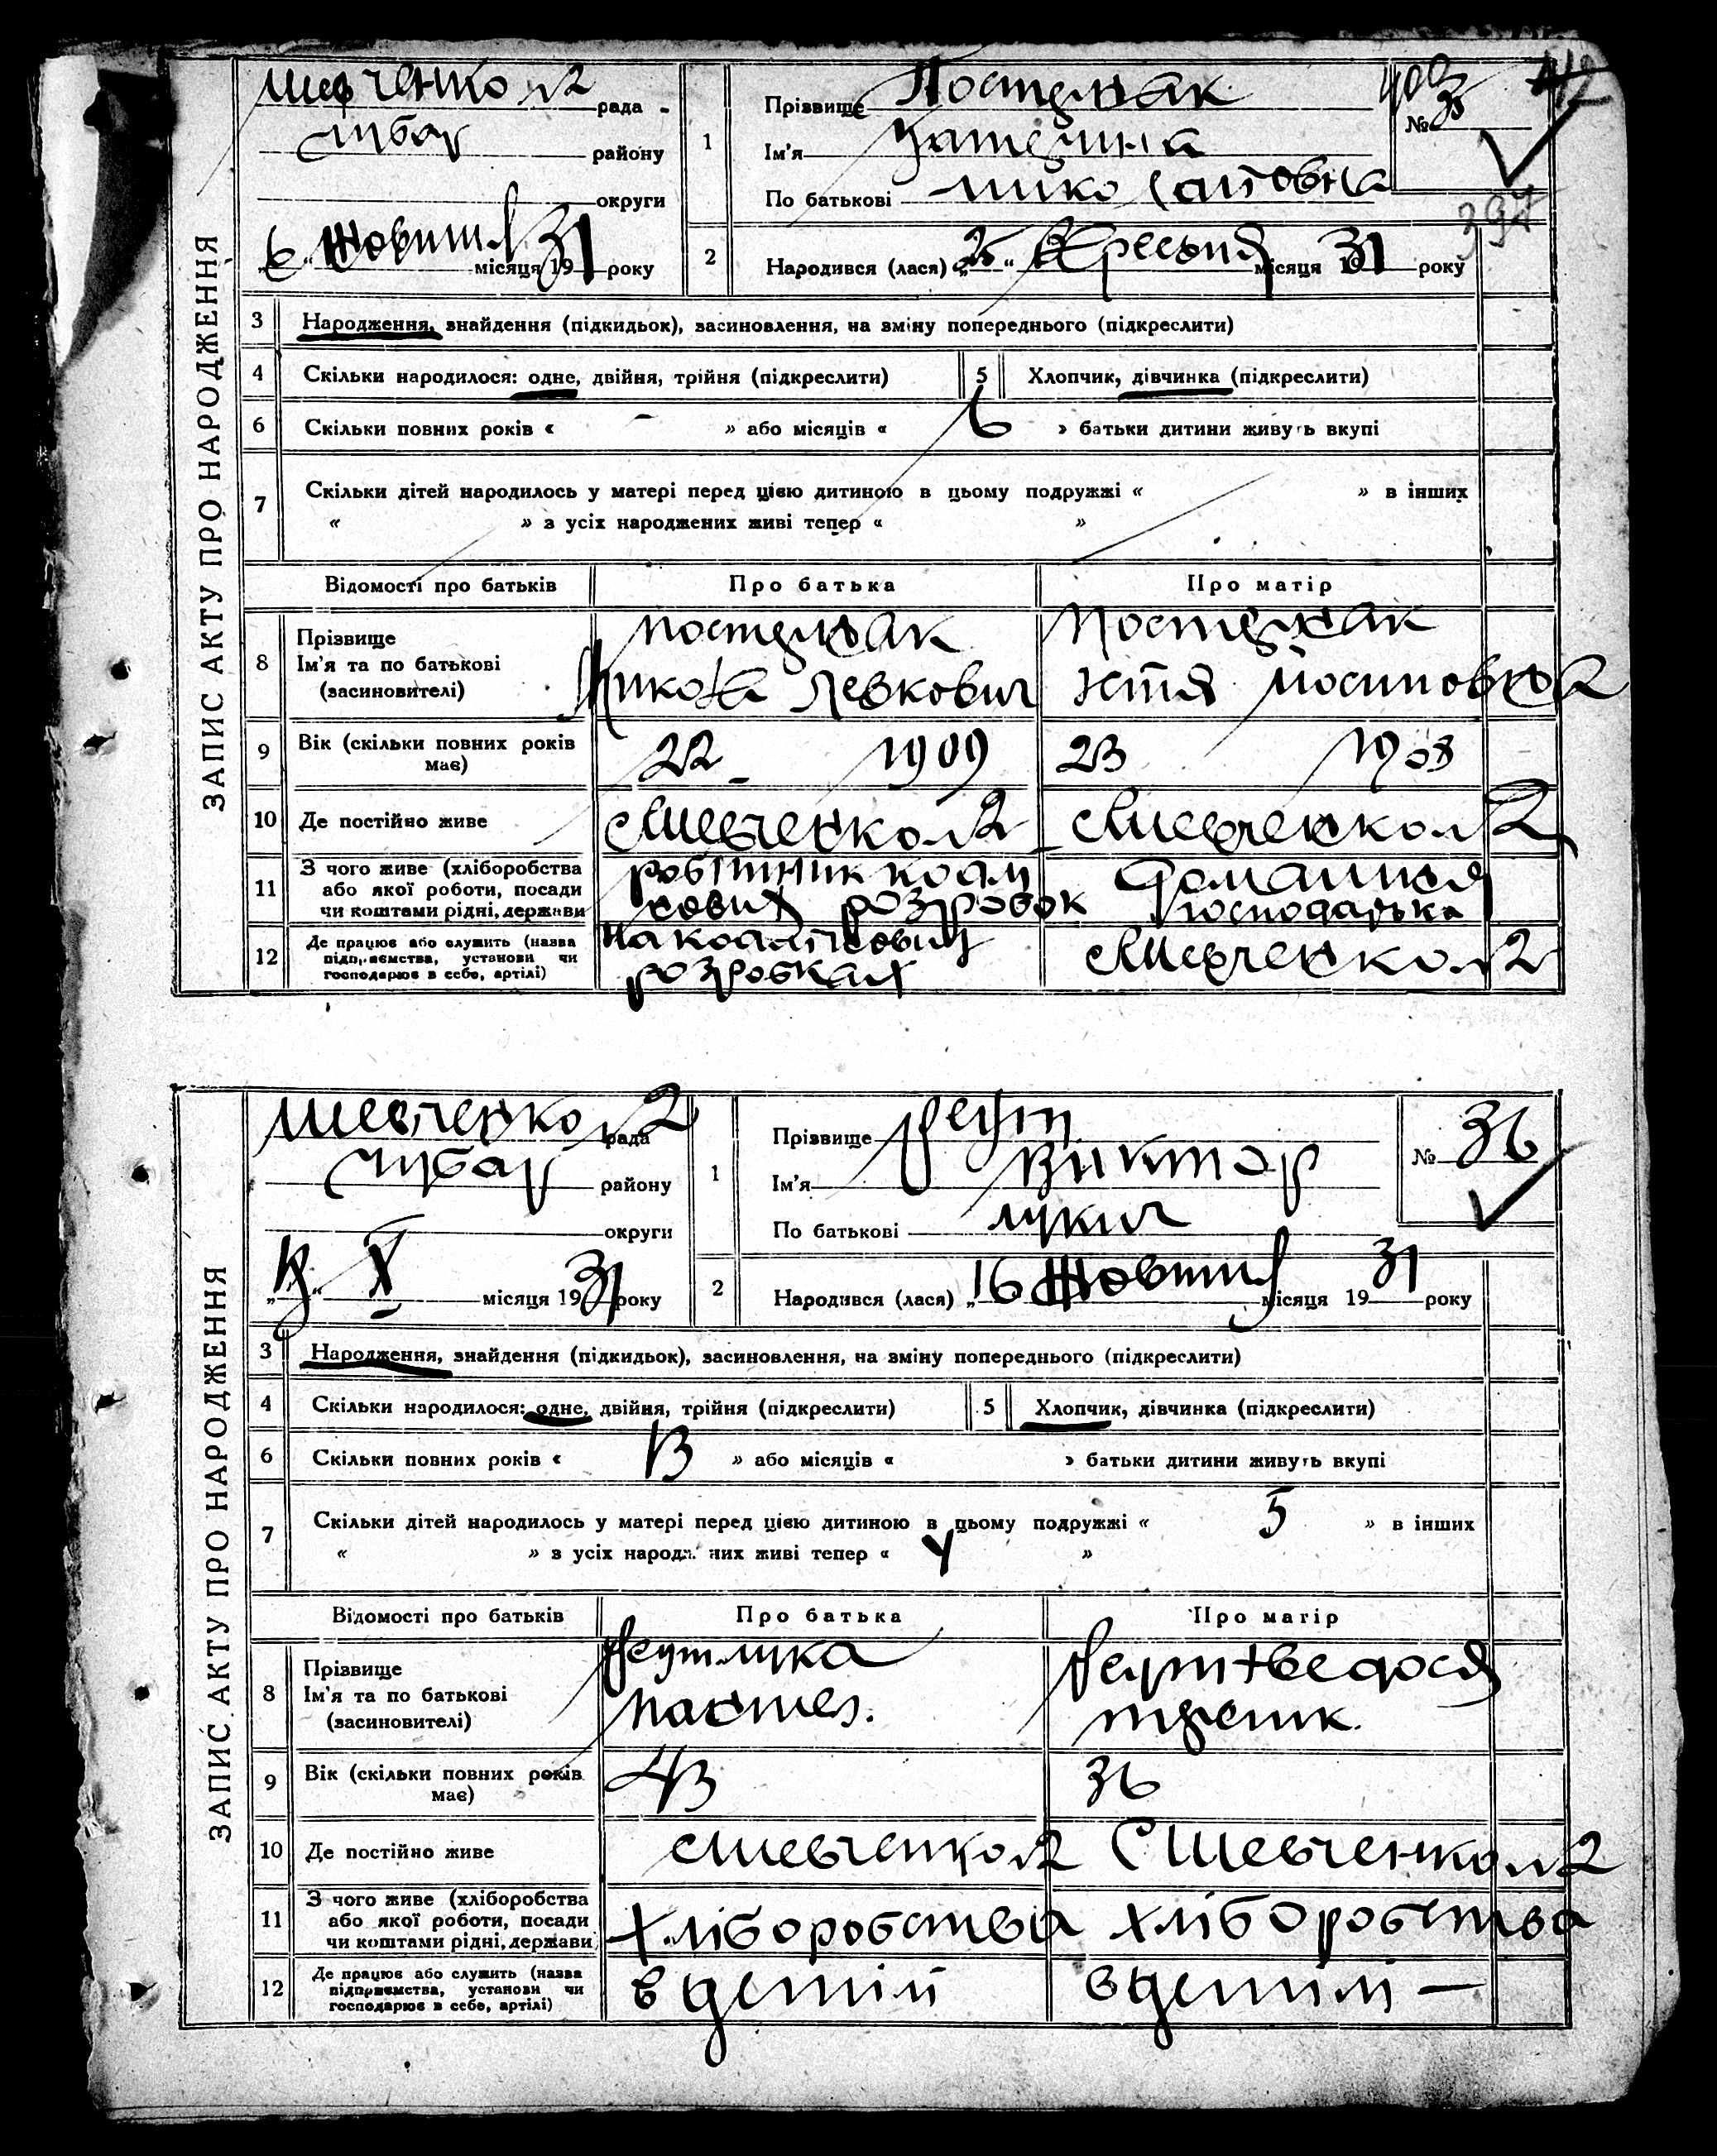 ЗАПИС АКТУ ПРО НАРОДЖЕННЯ
Шевченко №2 рада
Чубар району
округи
6 Жовтня місяця 1931 року
1
Прізвище Постельняк
Ім'я Катерина
По батькові Миколаївна
№ 35
409
412
397
2
Народився (лася) „25“ Вересня місяця 1931 року
3 Народження, знайдення (підкидьок), засиновлення, на зміну попереднього (підкреслити)
4 Скільки народилося: одне, двійня, трійня (підкреслити)
5 Хлопчик, дівчинка (підкреслити)
6 Скільки повних років « – » або місяців « 6 » батьки дитини живуть вкупі
7 Скільки дітей народилось у матері перед цією дитиною в цьому подружжі « » в інших
« » з усіх народжених живі тепер « »
Відомості про батьків Про батька Про матір
8 Прізвище
Ім'я та по батькові
(засиновителі)
Постельняк
Микола Левкович
Постельняк
Устя Йосиповна
9 Вік (скільки повних років має) 22 1909 23 1908
10 Де постійно живе с Шевченко №2 с Шевченко №2
11 З чого живе (хліборобства
або якої роботи, посади
чи коштами рідні, держави
робітник
розробок
Домашня
господарька
12 Де працює або служить (назва
підприємства, установи чи
господарює в себе, артілі)
на
розробках
с Шевченко №2
ЗАПИС АКТУ ПРО НАРОДЖЕННЯ
Шевченко №2 рада
Чубар району
округи
X місяця 1931 року
1
Прізвище Реут
Ім'я Виктор
По батькові Лукич
№ 36
2
Народився (лася) „16 Жовтня місяця 1931 року
3 Народження, знайдення (підкидьок), засиновлення, на зміну попереднього (підкреслити)
4 Скільки народилося: одне, двійня, трійня (підкреслити)
5 Хлопчик, дівчинка (підкреслити)
6 Скільки повних років « 13 » або місяців « » батьки дитини живуть вкупі
7 Скільки дітей народилось у матері перед цією дитиною в цьому подружжі « 5 » в інших
« » з усіх народжених живі тепер « 4 »
Відомості про батьків Про батька Про матір
8 Прізвище
Ім'я та по батькові
(засиновителі)
Реут Лука
Пантел.
Реут Феодося
9 Вік (скільки повних років має) 43 36
10 Де постійно живе с Шевченко №2 с Шевченко №2
11 З чого живе (хліборобства
або якої роботи, посади
чи коштами рідні, держави
Хліборобства хліборобства
12 Де працює або служить (назва
підприємства, установи чи
господарює в себе, артілі)